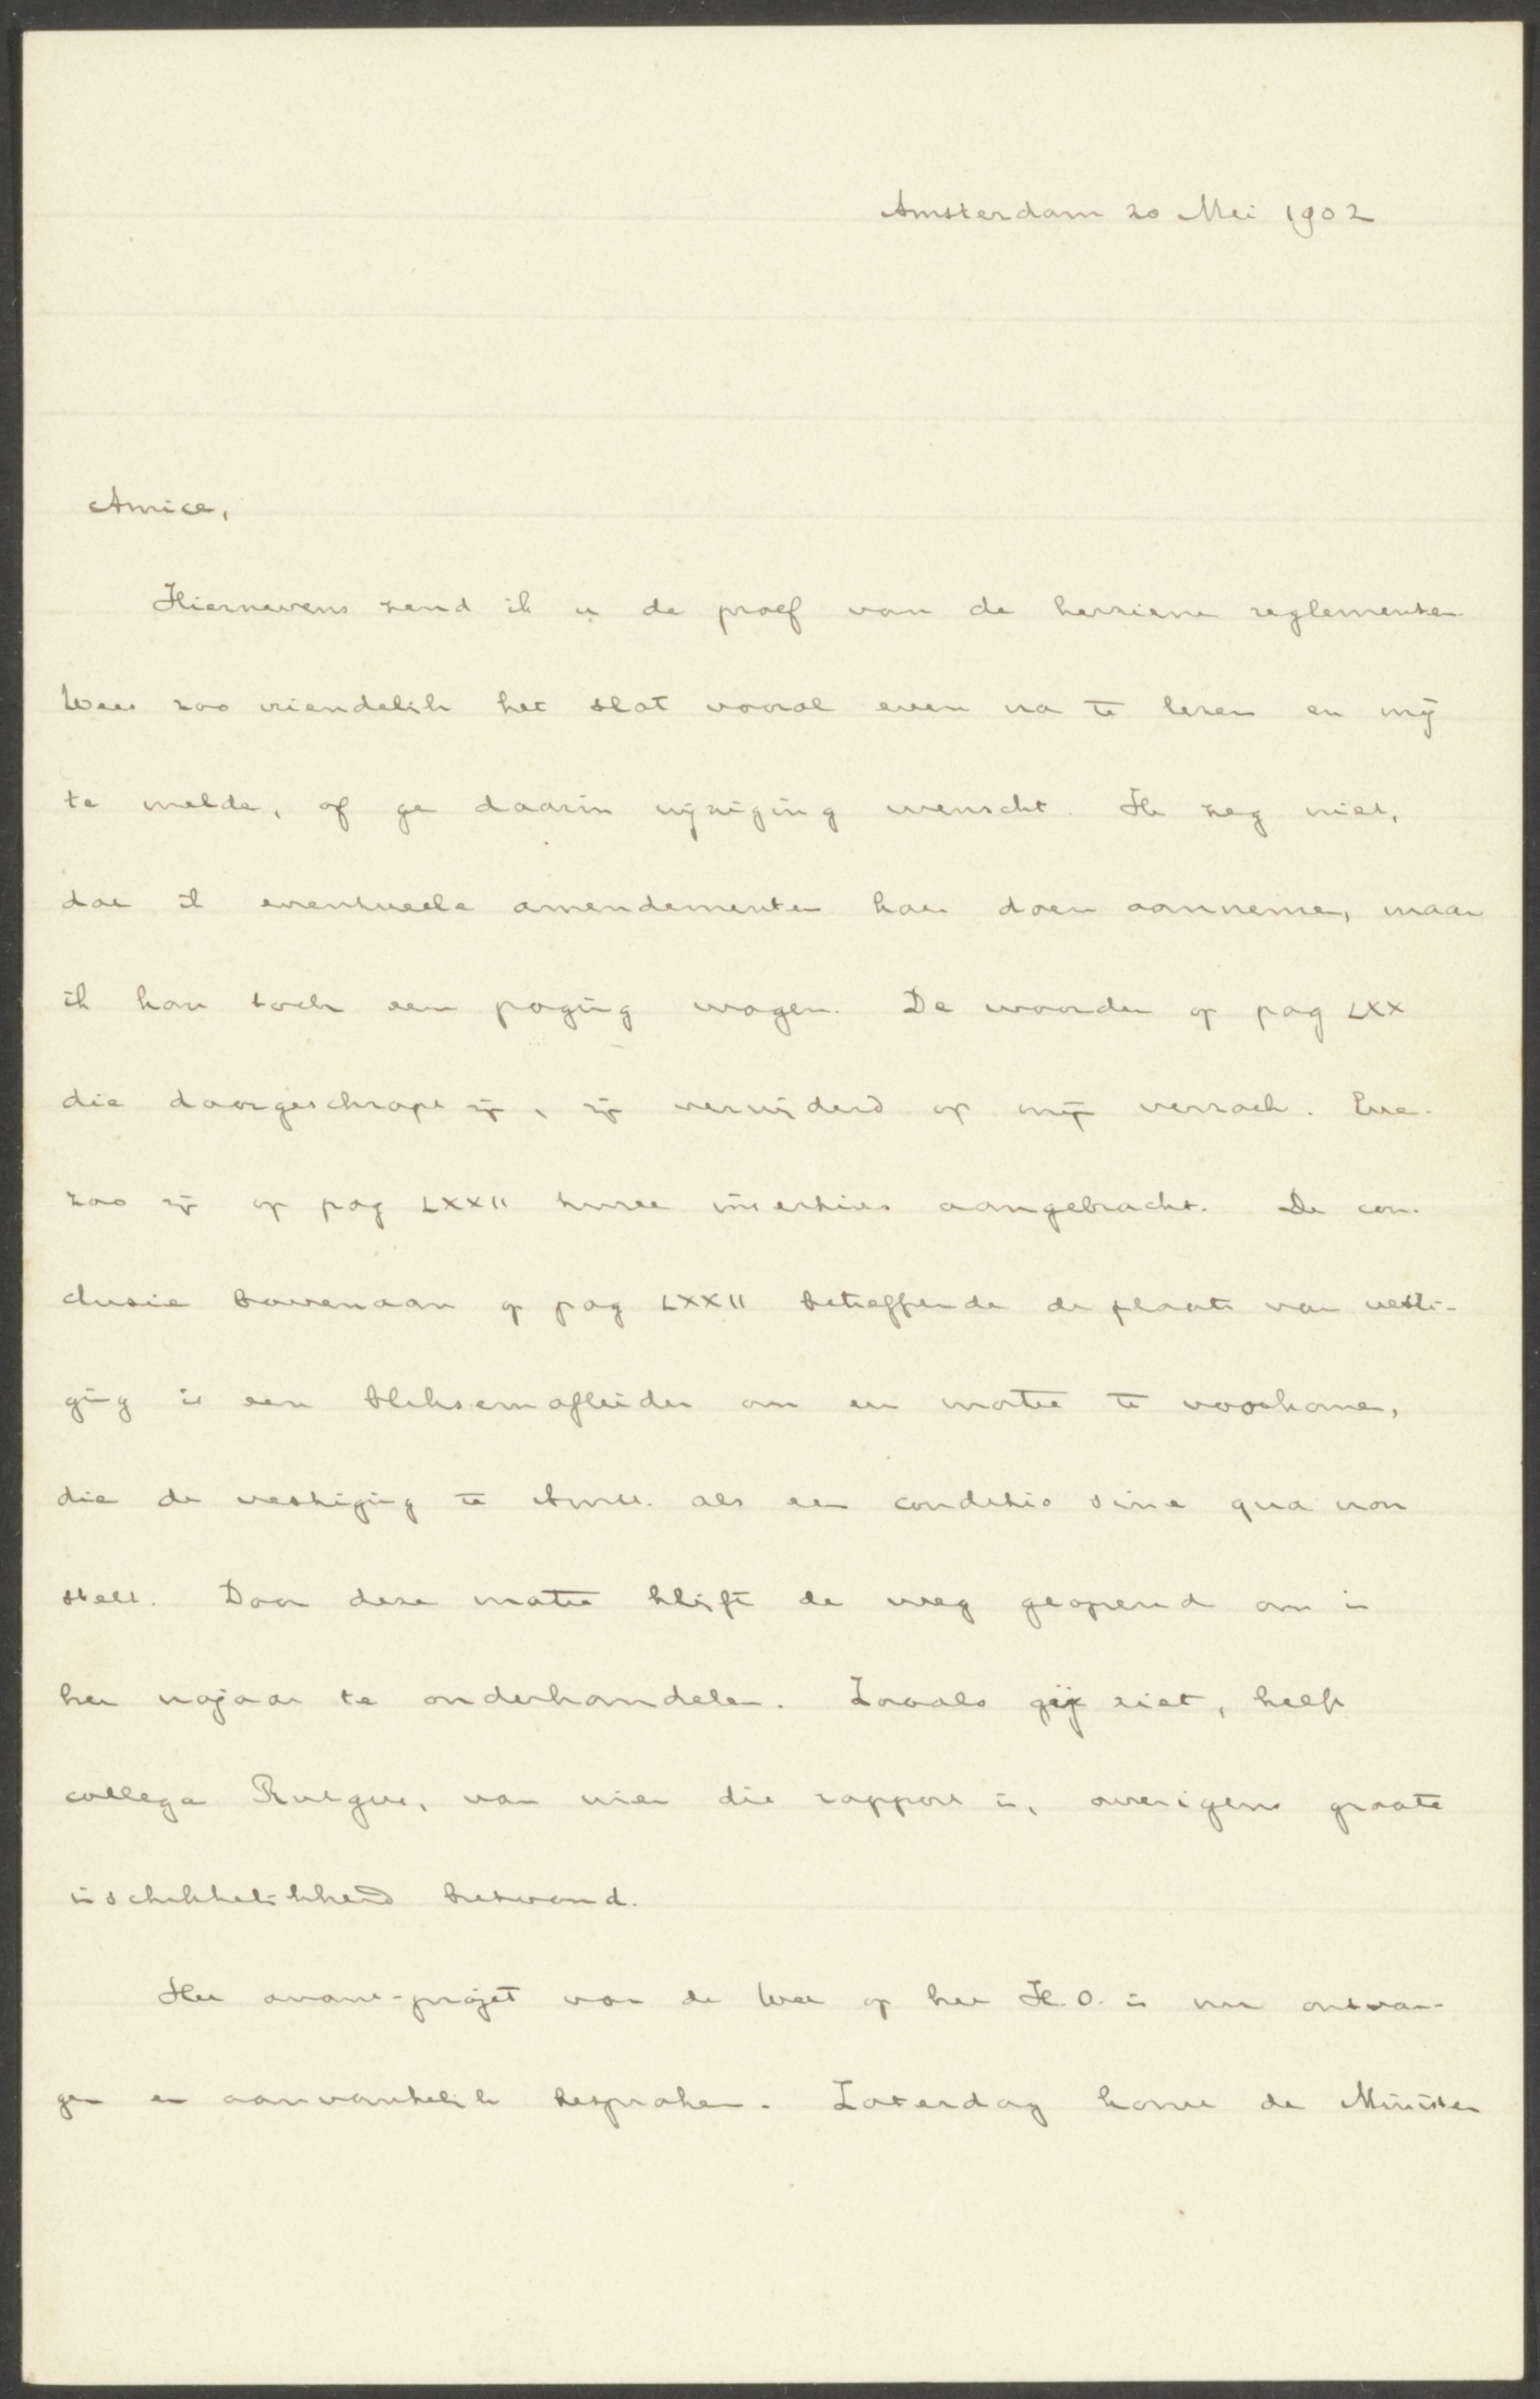 Amsterdam 20 Mei 1902
Amice,
Hiernevens zend ik u de proef van de herziene reglementen
Wees zoo vriendelijk het slot vooral even na te lezen en mij
te melden, of ge daarin wijziging wenscht. Ik zeg niet,
dat ik eventueele amendementen kan doen aannemen, maar
ik kan toch een poging wagen. De woorden op pag LXX
die doorgeschrapt zijn, zijn verwijderd op mijn verzoek. Eve-
zoo zijn op pag LXXII twee inserties aangebracht. De con-
clusie bovenaan op pag LXXII betreffende de plaats van vesti-
ging is een bliksemafleider om een motie te voorkomen,
die de vestiging te Amst. als een conditio sine qua non
stelt. Door deze motie blijft de weg geopend om in
het najaar te onderhandelen. Zooals gij ziet, heeft
collega Rutgers, van wien die rapport is, overigens groote
inschikkelijkheid betoond.
Het avant-projet van de Wet op het H.O. is nu ontvan-
gen en aanvankelijk besproken. Zaterdag komt de Minister